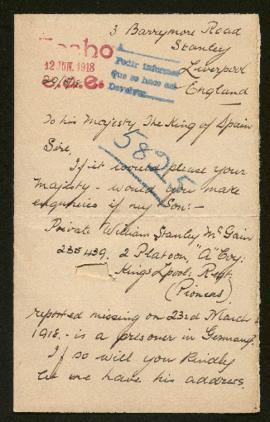 3 Barrymore Road
Stanley
Liverpool
England
Fecho
12 JUN. 1918
Pedir informes
que se hace así
Devolver
582
To his Majesty The King of Spain
Sire,
If it would please your
Majesty - would you make
enquiries if my Son:-
Private William Stanley McGrain
235439. 2 Platoon, "A" Coy.
Kings Lpool Regt,
(Pioneers)
reported missing on 23rd March
1918. - is a prisoner in Germany.
If so will you Kindly
let me have his address.